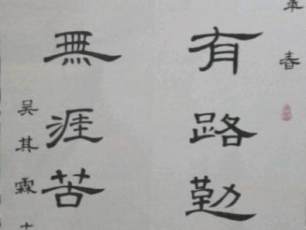 春
有路勤
無涯苦
吴其霖